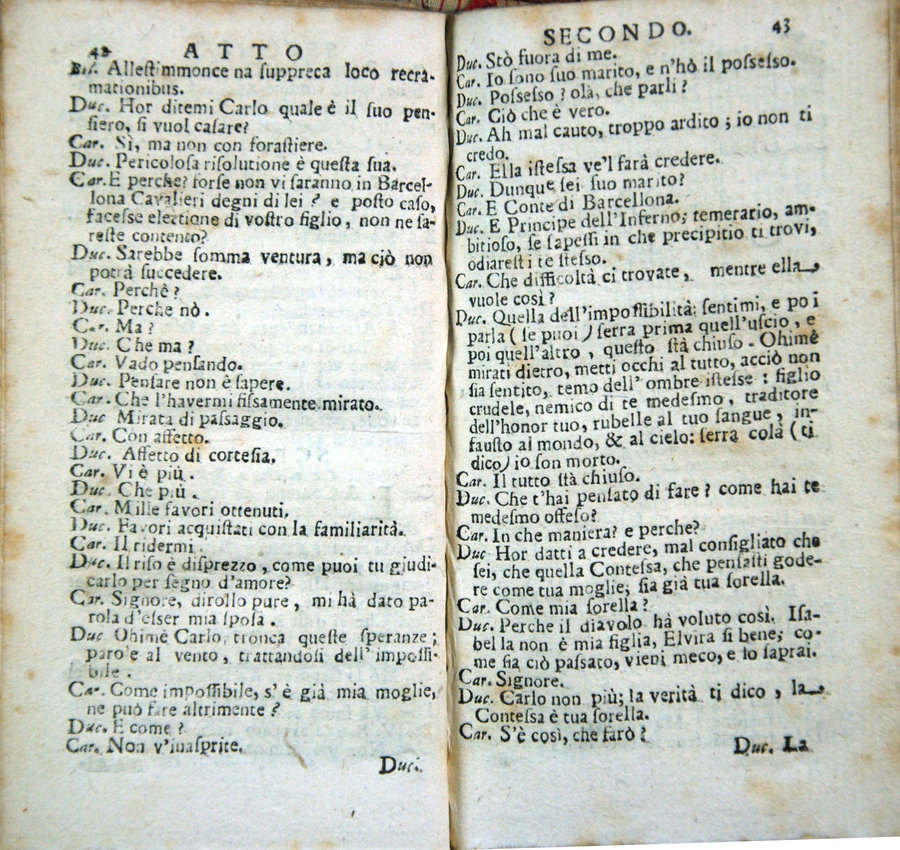 42 ATTO
Bis. Allestimmonce na suppreca loco recra-
mationibus.
Duc. Hor ditemi Carlo quale è il suo pen-
siero, si vuol casare?
Car. Sì, ma non con forastiere.
Duc. Pericolosa risolutione è questa sua.
Car. E perche? forse non vi saranno in Barcel-
lona Cavalieri degni di lei? e posto caso,
facesse elettione di vostro figlio, non ne sa-
reste contento?
Duc. Sarebbe somma ventura, ma ciò non
potrà succedere.
Car. Perchê?
Duc. Perche nò.
Car. Ma?
Duc. Che ma?
Car. Vado pensando.
Duc. Pensare non è sapere.
Car. Che l'havermi fissamente mirato.
Duc Mirata di passaggio.
Car. Con affetto.
Duc. Affetto di cortesia.
Car. Vi è più.
Duc. Che più.
Car. Mille favori ottenuti.
Duc. Favori acquistati con la familiarità.
Car. Il ridermi.
Duc. Il riso è disprezzo, come puoi tu giudi-
carlo per segno d'amore?
Car. Signore, dirollo pure, mi hà dato pa-
rola d'esser mia sposa.
Duc Ohimè Carlo, tronca queste speranze;
parole al vento, trattandosi dell' impossi-
bile.
Car. Come impossibile, s'è già mia moglie,
ne può fare altrimente?
Duc. E come?
Car. Non v'inasprite.
Duc.
SECONDO. 43
Duc. Stò fuora di me.
Car. Io sono suo marito, e n'hò il possesso.
Duc. Possesso? olà, che parli?
Car. Ciò che è vero.
Duc. Ah mal cauto, troppo ardito; io non ti
credo.
Car. Ella istessa ve'l farà credere.
Duc. Dunque sei suo marito?
Car. E Conte di Barcellona.
Duc. E Principe dell'Inferno; temerario, am-
bitioso, se sapessi in che precipitio ti trovi,
odiaresti te stesso.
Car. Che difficoltà ci trovate, mentre ella
vuole così?
Duc. Quella dell'impossibilità: sentimi, e poi
parla (se puoi) serra prima quell'uscio, e
poi quell'altro, questo stà chiuso. Ohimè
mirati dietro, metti occhi al tutto, acciò non
sia sentito, temo dell' ombre istesse: figlio
crudele, nemico di te medesmo, traditore
dell'honor tuo, rubelle al tuo sangue, in-
fausto al mondo, & al cielo: serra colà (ti
dico) io son morto.
Car. Il tutto stà chiuso.
Duc. Che t'hai pensato di fare? come hai te
medesmo offeso?
Car. In che maniera? e perche?
Duc Hor datti a credere, mal consigliato che
sei, che quella Contessa, che pensasti gode-
re come tua moglie; sia già tua sorella.
Car. Come mia sorella?
Duc. Perche il diavolo hà voluto così. Isa-
bella non è mia figlia, Elvira si bene; co-
me sia ciò passato, vieni meco, e lo saprai.
Car. Signore.
Duc. Carlo non più; la verità ti dico, la
Contessa è tua sorella.
Car. S'è così, che farò?
Duc. La